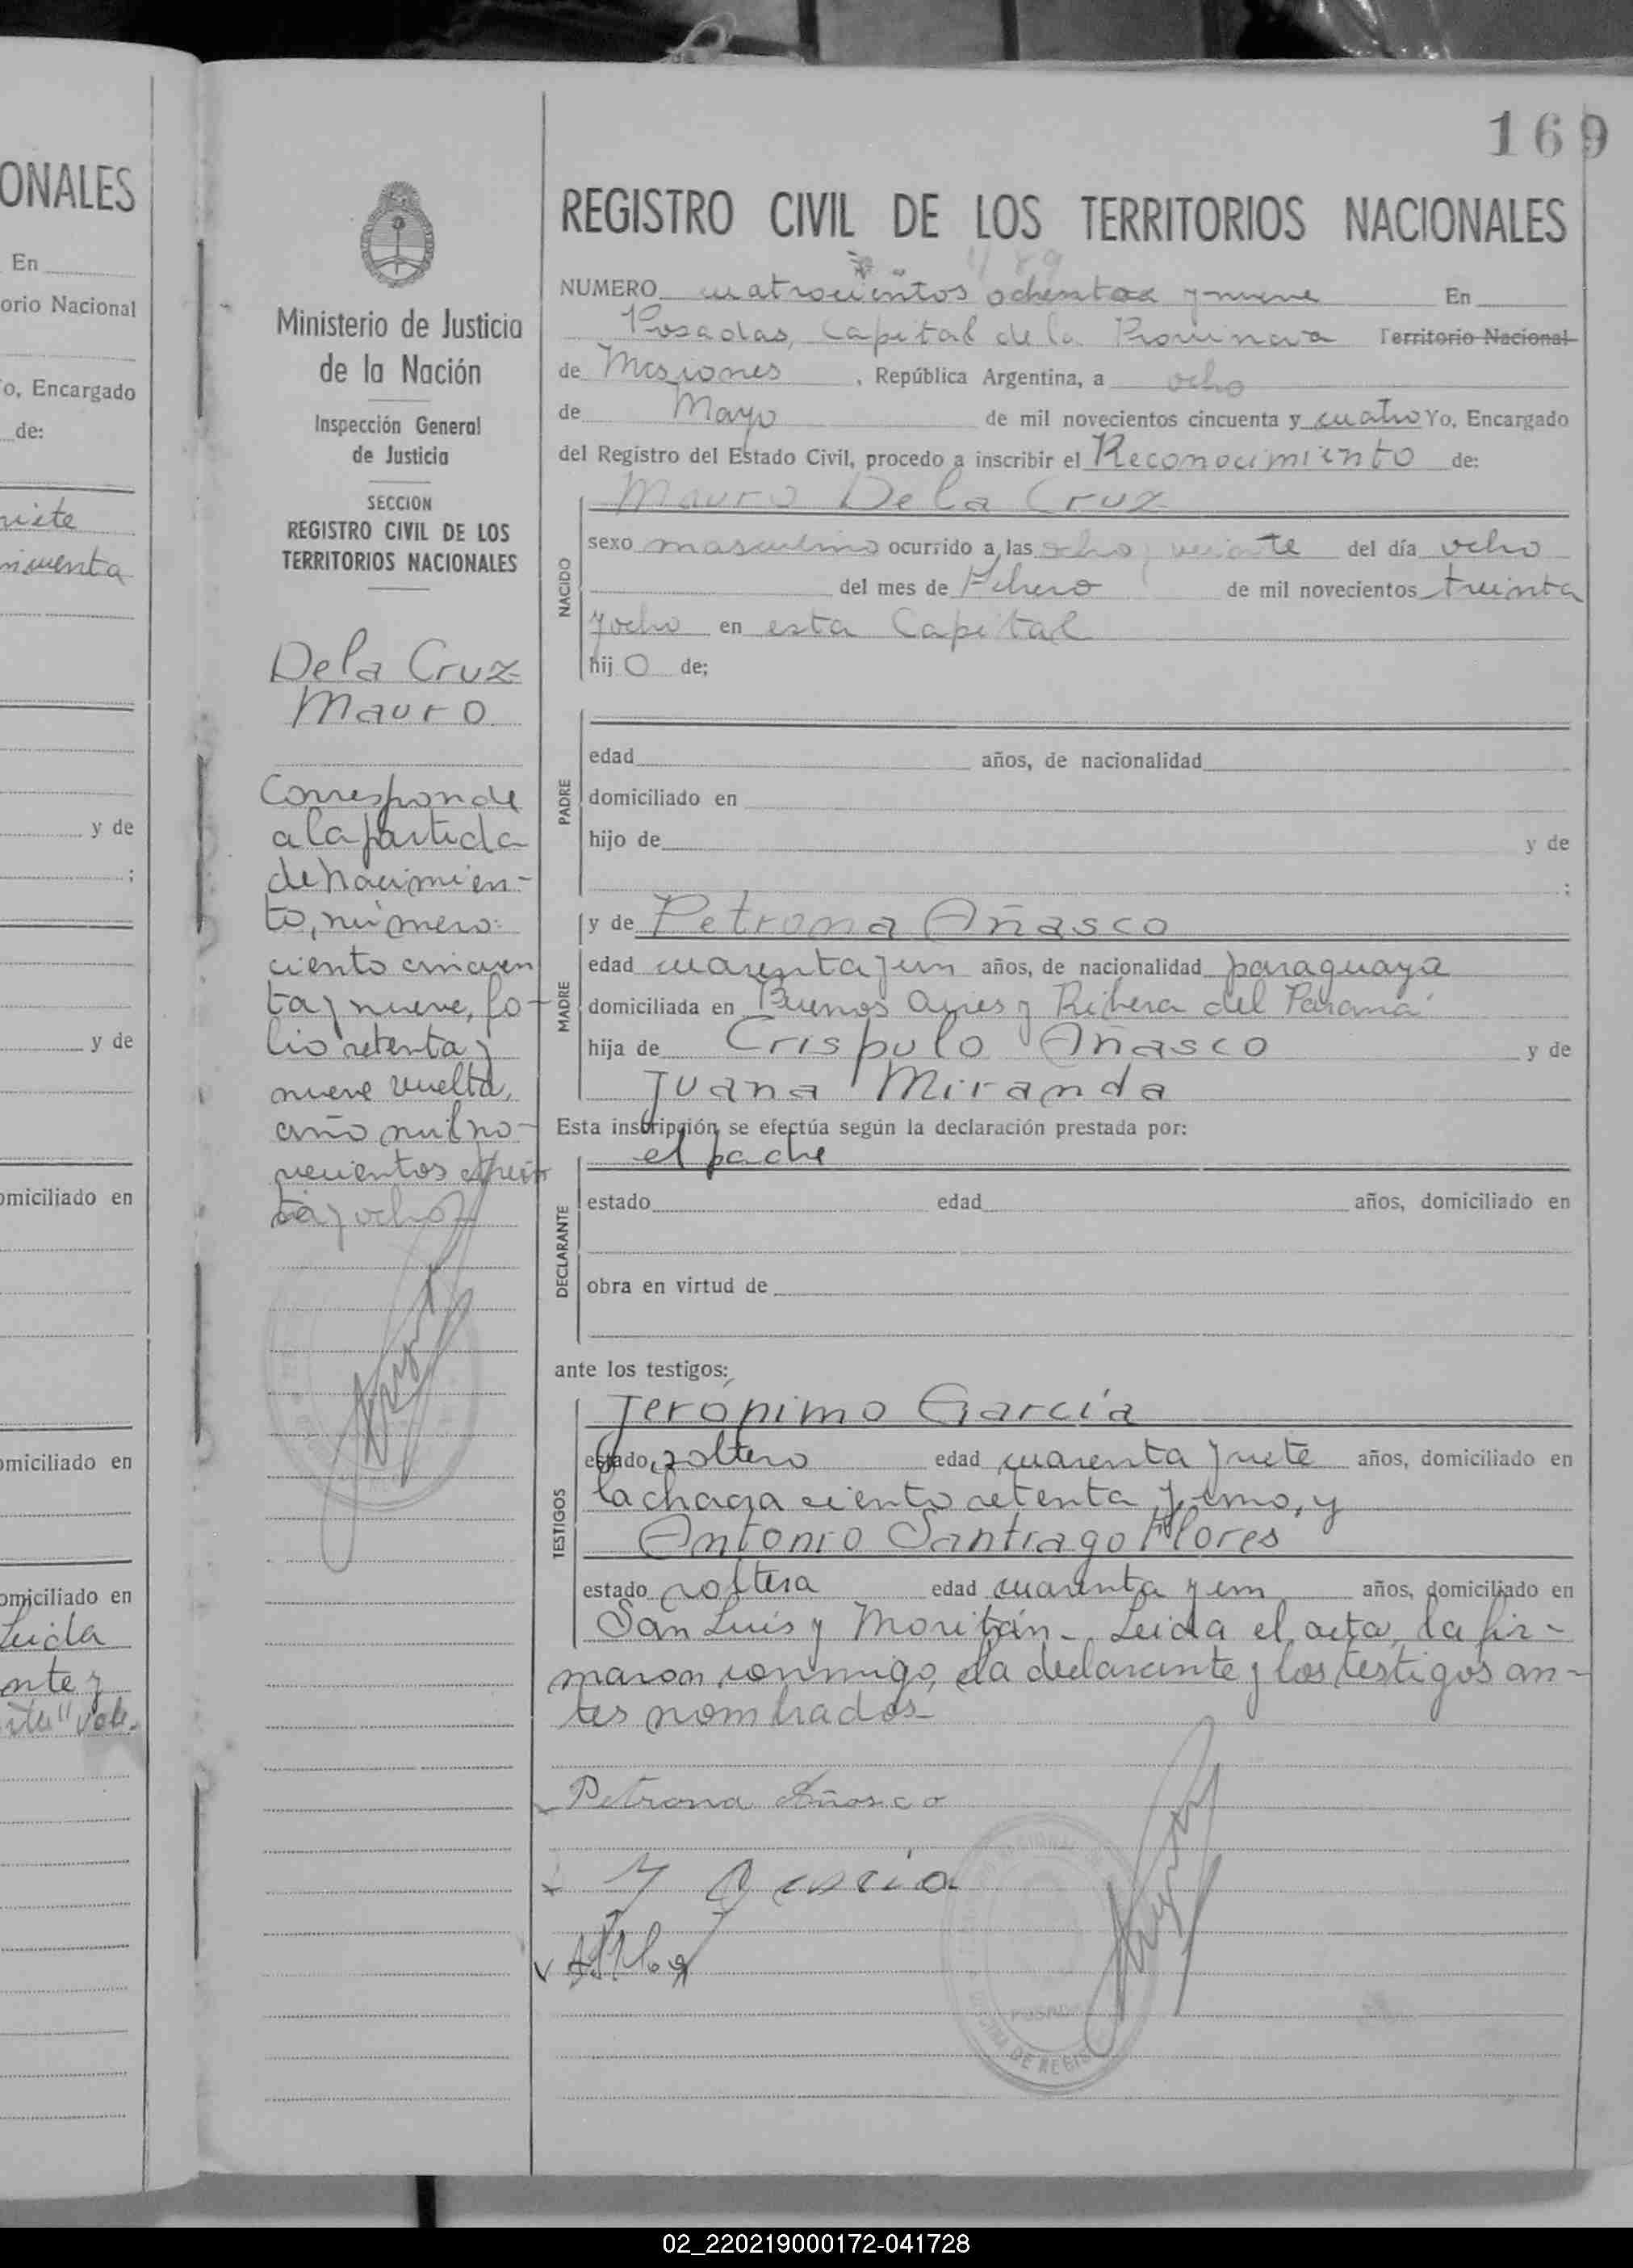 ONALES
En
orio Nacional
o, Encargado
de:
y de
;
y de
omiciliado en
omiciliado en
omiciliado en
Leida
169
Ministerio de Justicia
de la Nación
Inspección General
de Justicia
SECCION
REGISTRO CIVIL DE LOS
TERRITORIOS NACIONALES
De la Cruz
Mauro
Corresponde
a la partida
de nacimien-
to, número
ciento cincuen
ta y nueve, fo-
lio setenta y
nueve vuelta,
año mil no-
vecientos trein
ta y ocho
REGISTRO CIVIL DE LOS TERRITORIOS NACIONALES
489
NUMERO cuatrocientos ochenta y nueve En
Posadas, Capital de la Provincia Territorio Nacional
de Misiones , República Argentina, a ocho
de Mayo de mil novecientos cincuenta y cuatro Yo, Encargado
del Registro del Estado Civil, procedo a inscribir el Reconocimiento de:
Mauro De la Cruz
NACIDO
sexo masculino ocurrido a las ocho y veinte del día ocho
del mes de Febrero de mil novecientos treinta
y ocho en esta Capital
hij o de;
PADRE
edad años, de nacionalidad
domiciliado en
hijo de y de
;
MADRE
y de Petrona Añasco
edad cuarenta y un años, de nacionalidad paraguaya
domiciliada en Buenos Aires y Ribera del Paraná
hija de Crispulo Añasco y de
Juana Miranda
Esta inscripción se efectúa según la declaración prestada por:
el padre
DECLARANTE
estado edad años, domiciliado en
obra en virtud de
ante los testigos:
TESTIGOS
Jerónimo García
estado soltero edad cuarenta y siete años, domiciliado en
la chacra ciento setenta y uno, y
Antonio Santiago Flores
estado soltero edad cuarenta y un años, domiciliado en
San Luis y Moritán - Leida el acta, la fir-
maron conmigo, la declarante y los testigos an-
tes nombrados
Petrona Añasco
J Garcia
02_220219000172-041728